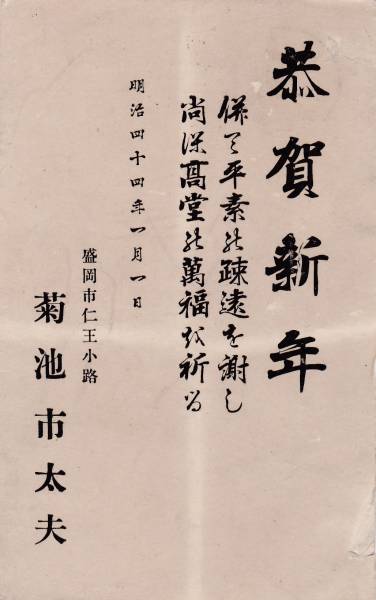 恭賀新年
併て平素の疎遠を謝し
尚併高堂の萬福を祈る
明治四十四年一月一日
盛岡市仁王小路
菊池市太夫